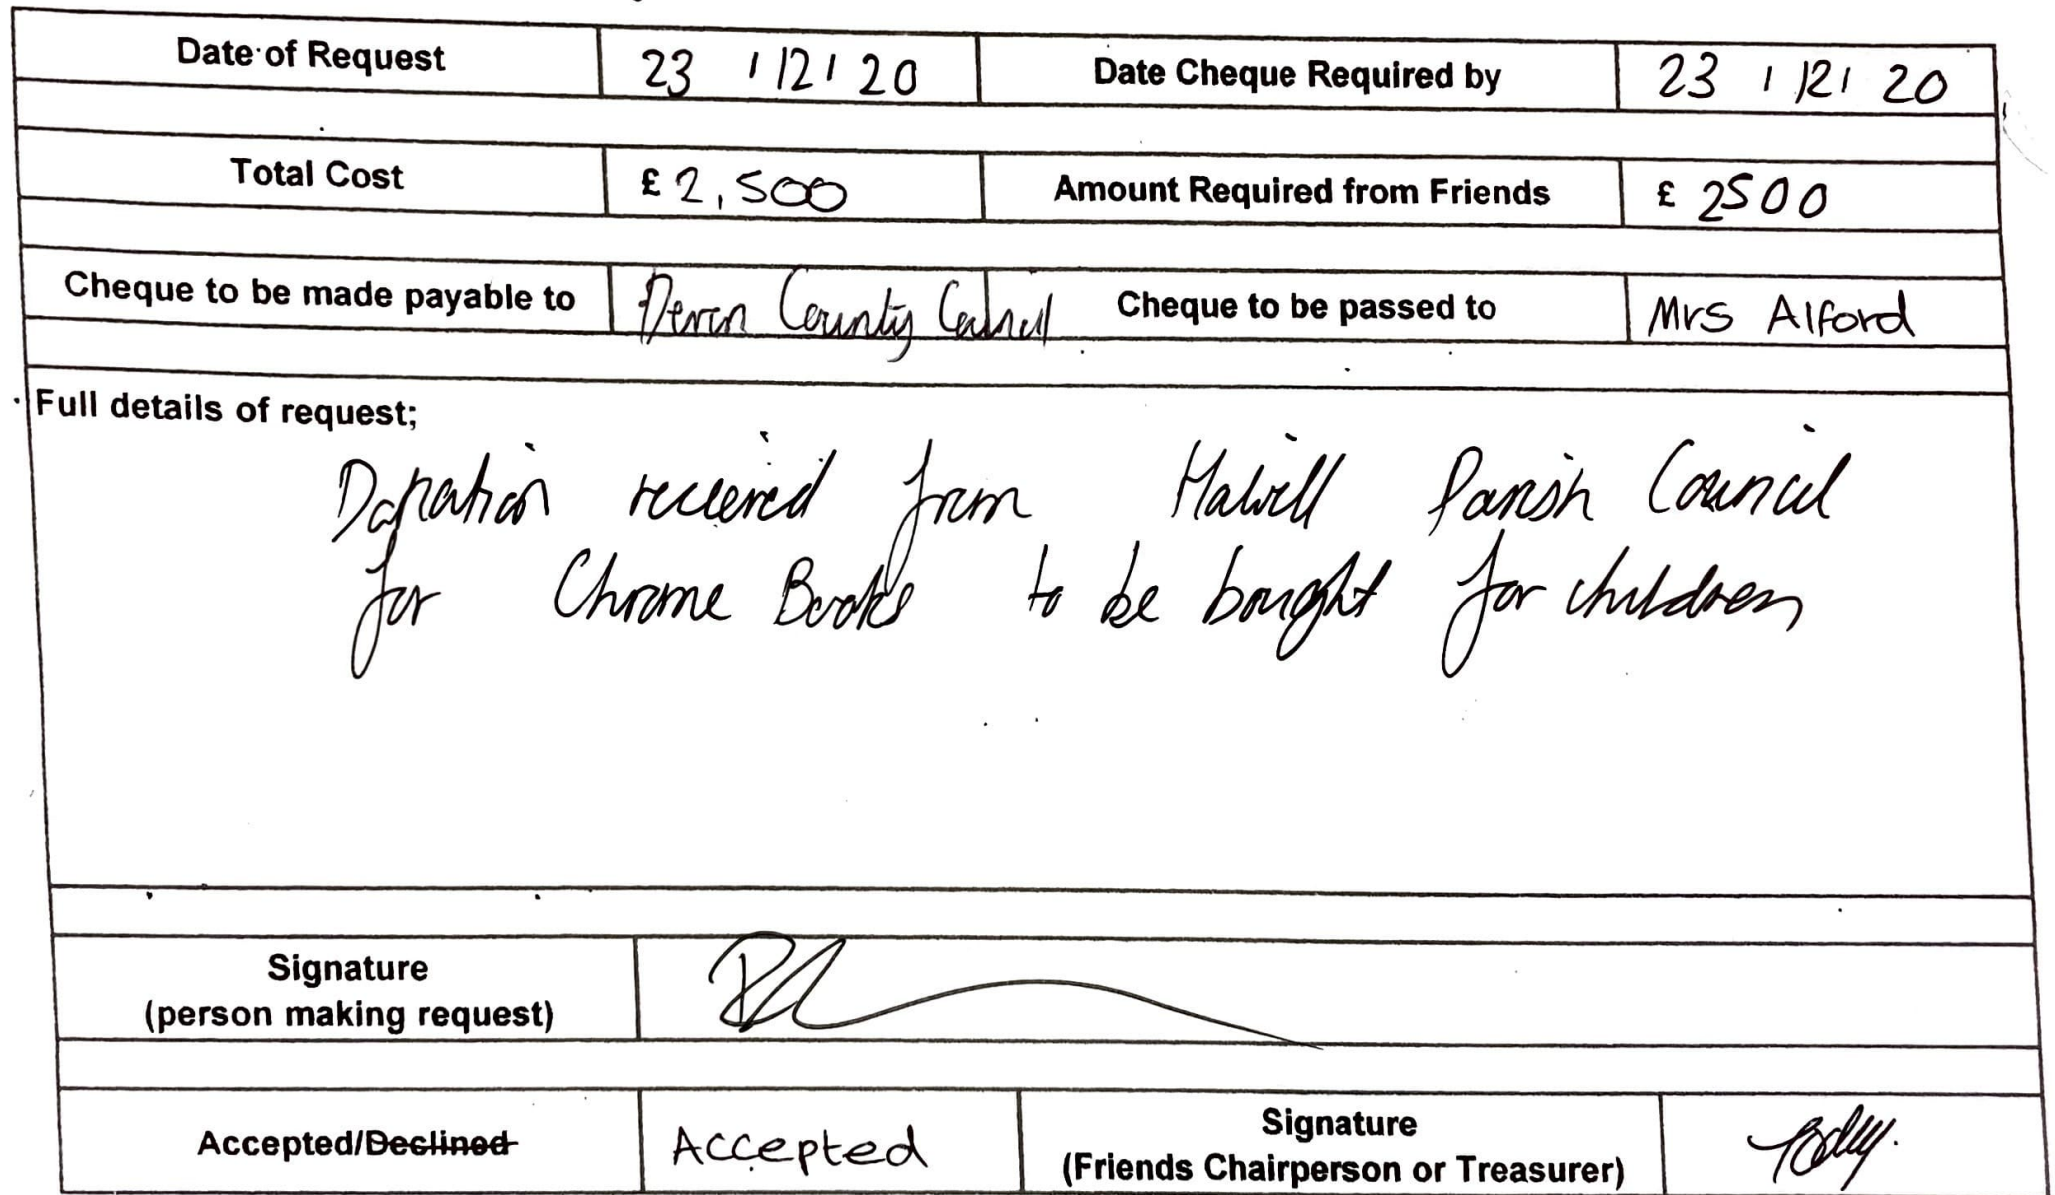 Date of Request 23 / 12 / 20 Date Cheque Required by 23 / 12 / 20
Total Cost £ 2,500 Amount Required from Friends £ 2500
Cheque to be made payable to Devon County Council Cheque to be passed to Mrs Alford
Full details of request;
Donation recieved from Halwill Parish Council
for Chrome Books to be bought for children
Signature
(person making request)
Accepted/Declined Accepted Signature
(Friends Chairperson or Treasurer)